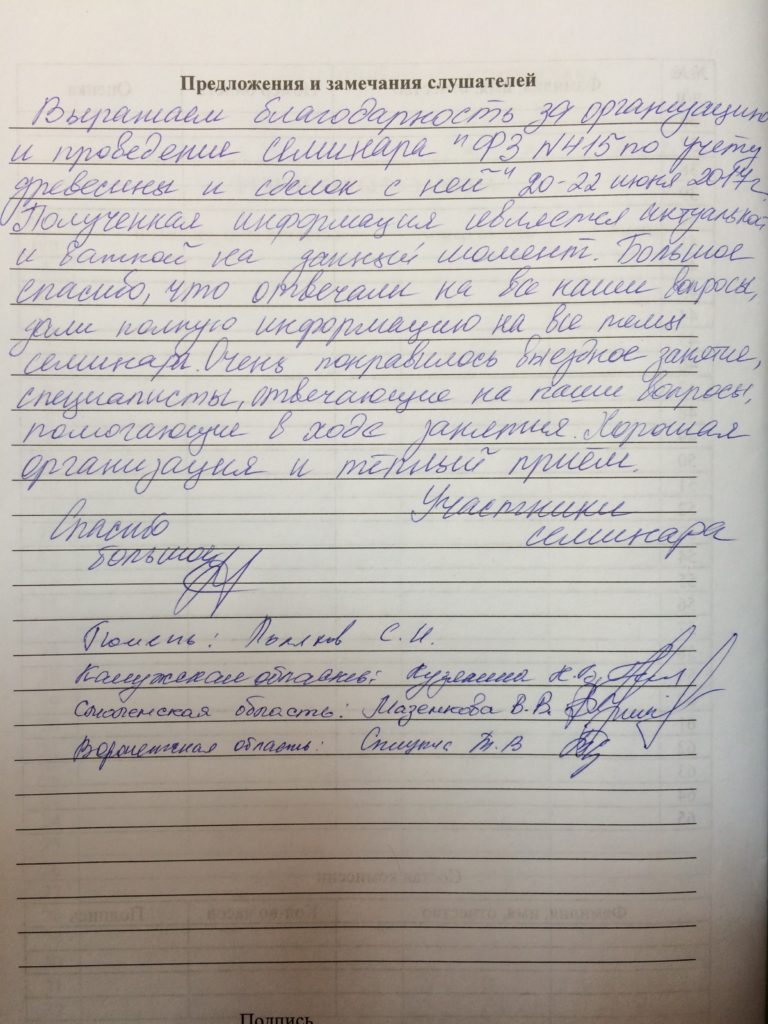 Предложения и замечания слушателей
Выражаем благодарность за организацию
и проведение семинара "ФЗ N415 по учету
древесины и сделок с ней" 20-22 июня 2017г.
Полученная информация является актуальной
и важной на данный момент. Большое
спасибо, что отвечали на все наши вопросы,
дали полную информацию на все темы
семинара. Очень понравилось выездное занятие,
специалисты, отвечающие на наши вопросы,
помогающие в ходе занятия. Хорошая
организация и тёплый приём.
Участники
семинара
Спасибо
большое
Тюмень: С. И.
Калужская область: Н. В.
Смоленская область: Мазенкова В. В.
Воронежская область: Т. В
Подпись